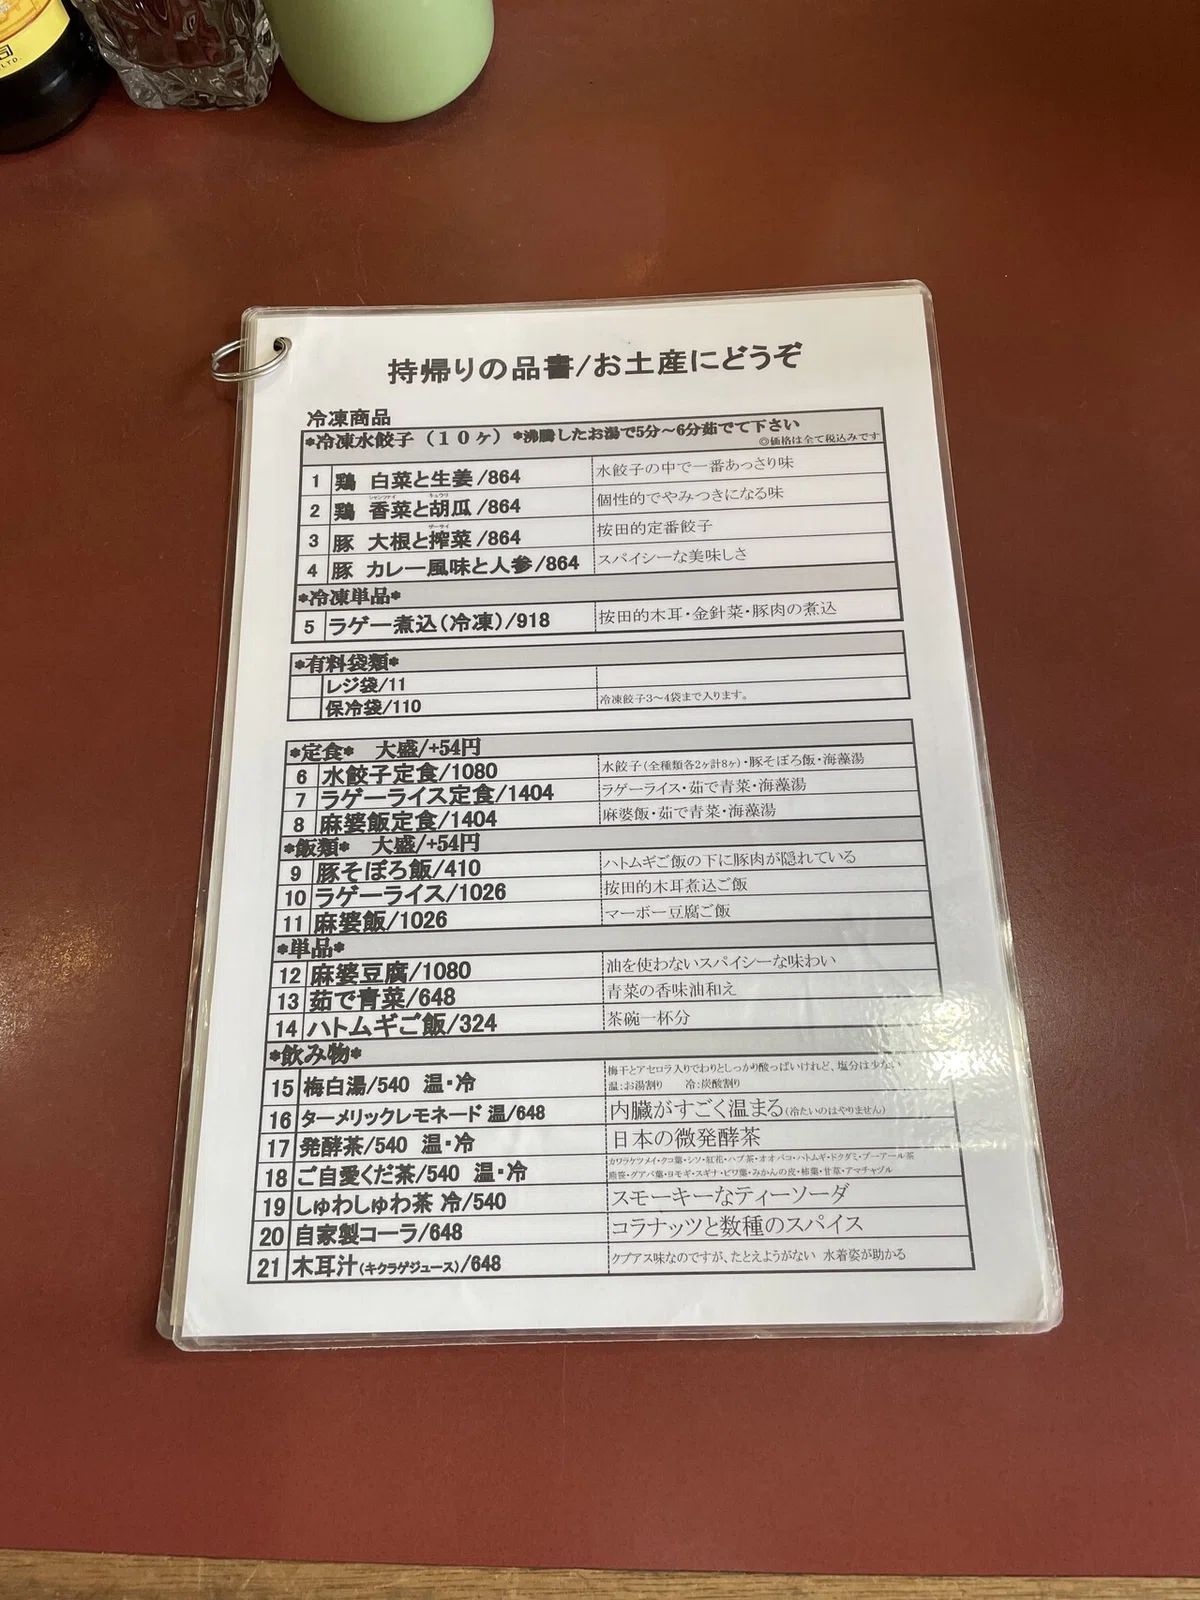 LTD.
持帰りの品書/お土産にどうぞ
冷凍商品
*冷凍水餃子（10ヶ）*沸騰したお湯で5分～6分茹でて下さい
◎価格は全て税込みです
1 鶏 白菜と生姜/864 水餃子の中で一番あっさり味
シャンツァイ キュウリ
2 鶏 香菜と胡瓜/864 個性的でやみつきになる味
ザーサイ
3 豚 大根と搾菜/864 按田的定番餃子
4 豚 カレー風味と人参/864 スパイシーな美味しさ
*冷凍単品*
5 ラゲー煮込（冷凍）/918 按田的木耳・金針菜・豚肉の煮込
*有料袋類*
レジ袋/11
保冷袋/110 冷凍餃子3～4袋まで入ります。
*定食* 大盛/+54円
6 水餃子定食/1080 水餃子（全種類各2ヶ計8ヶ）・豚そぼろ飯・海藻湯
7 ラゲーライス定食/1404 ラゲーライス・茹で青菜・海藻湯
8 麻婆飯定食/1404 麻婆飯・茹で青菜・海藻湯
*飯類* 大盛/+54円
9 豚そぼろ飯/410 ハトムギご飯の下に豚肉が隠れている
10 ラゲーライス/1026 按田的木耳煮込ご飯
11 麻婆飯/1026 マーボー豆腐ご飯
*単品*
12 麻婆豆腐/1080 油を使わないスパイシーな味わい
13 茹で青菜/648 青菜の香味油和え
14 ハトムギご飯/324 茶碗一杯分
*飲み物*
15 梅白湯/540 温・冷 梅干とアセロラ入りでわりとしっかり酸っぱいけれど、塩分は少ない
温：お湯割り 冷：炭酸割り
16 ターメリックレモネード 温/648 内臓がすごく温まる（冷たいのはやりません）
17 発酵茶/540 温・冷 日本の微発酵茶
18 ご自愛くだ茶/540 温・冷 カワラケツメイ・クコ葉・シソ・紅花・ハブ茶・オオバコ・ハトムギ・ドクダミ・プーアール茶
熊笹・グアバ葉・ヨモギ・スギナ・ビワ葉・みかんの皮・柿葉・甘草・アマチャヅル
19 しゅわしゅわ茶 冷/540 スモーキーなティーソーダ
20 自家製コーラ/648 コラナッツと数種のスパイス
21 木耳汁（キクラゲジュース）/648 クプアス味なのですが、たとえようがない 水着姿が助かる